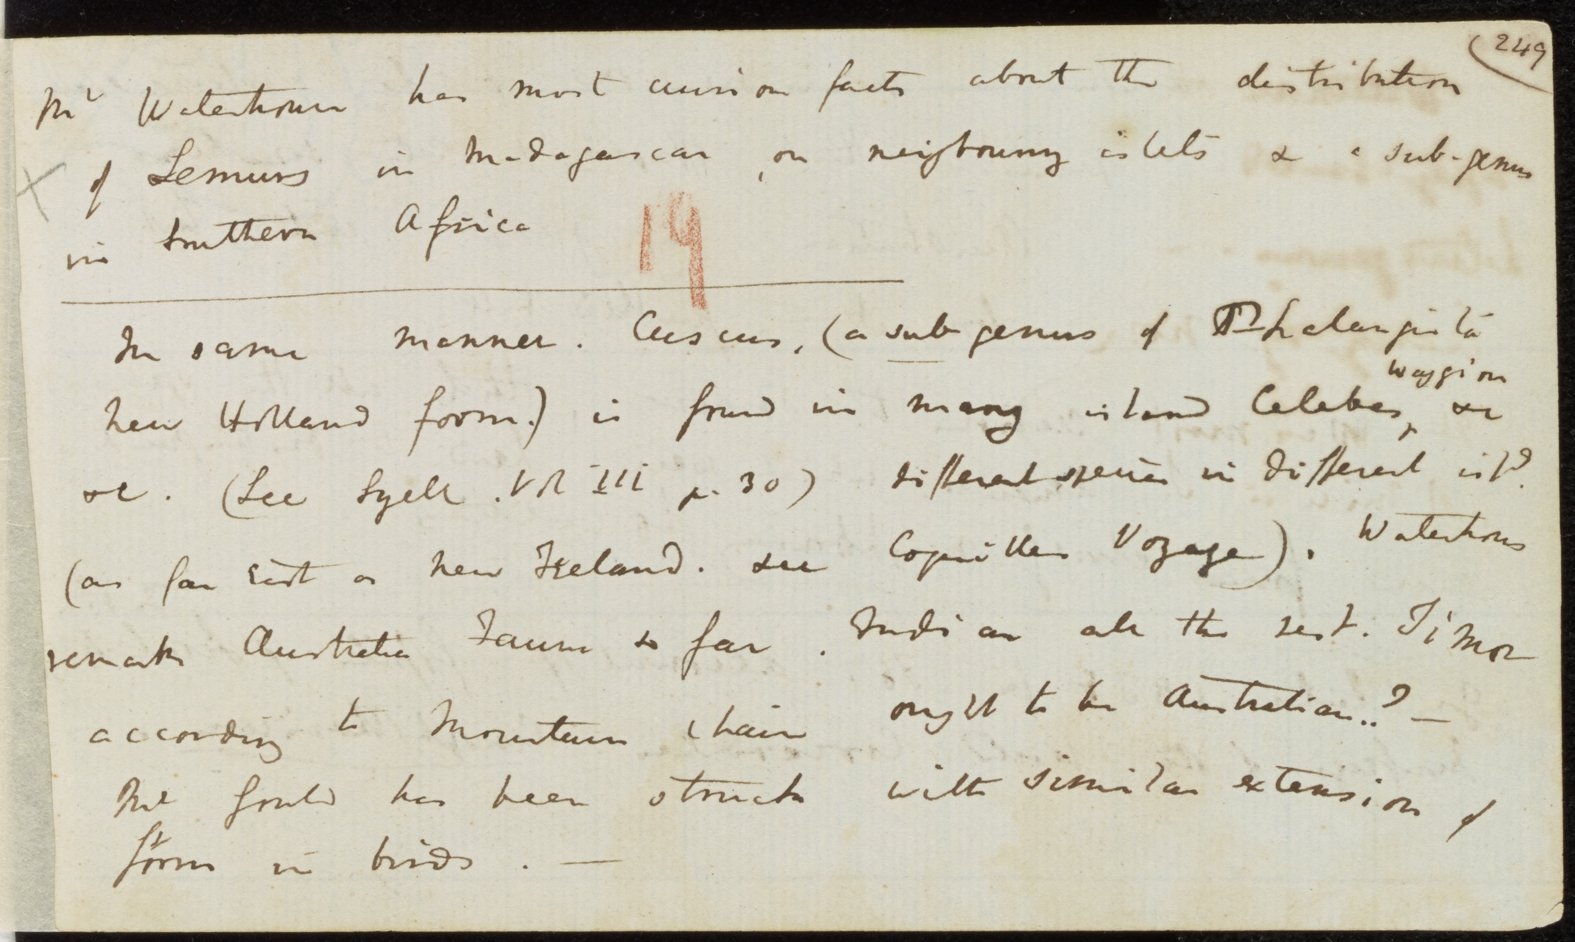 249
Mr Waterhouse has most curious facts about the distribution
of Lemurs in Madagascar, on neighbouring islets & a sub-genus
in Southern Africa
19
In same manner. Cuscus, (a sub genus of Phalangista
New Holland form.) is found in many island Celebes, Waygiou &c
&c. (See Lyell. Vol III p. 30) different species in different isld?
(as far East as New Ireland. see Coquilles Voyage). Waterhouse
remarks Australia Fauna so far. Indian all the rest. Timor
according to Mountain chain ought to be Australian..? —
Mr Gould has been struck with similar extension of
form in birds. —